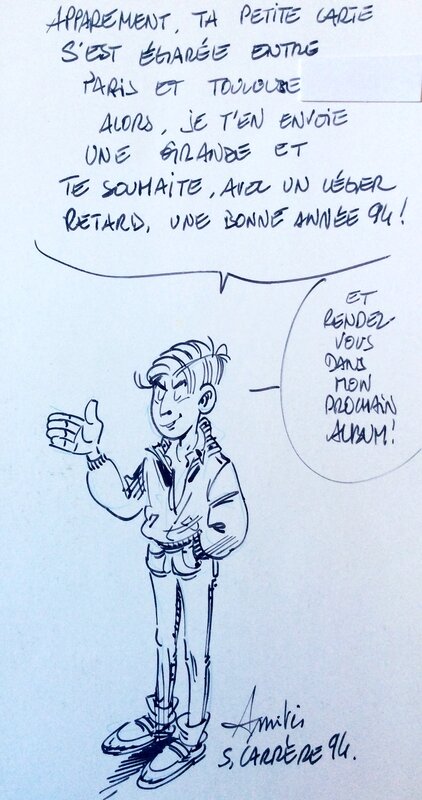 APPAREMENT, TA PETITE CARTE
S'EST ÉGARÉE ENTRE
PARIS ET TOULOUSE
ALORS, JE T'EN ENVOIE
UNE GRANDE ET
TE SOUHAITE, AVEC UN LÉGER
RETARD, UNE BONNE ANNÉE 94!
ET
RENDEZ-
VOUS
DANS
MON
PROCHAIN
ALBUM!
Amitiés
S. CARRÈRE 94.